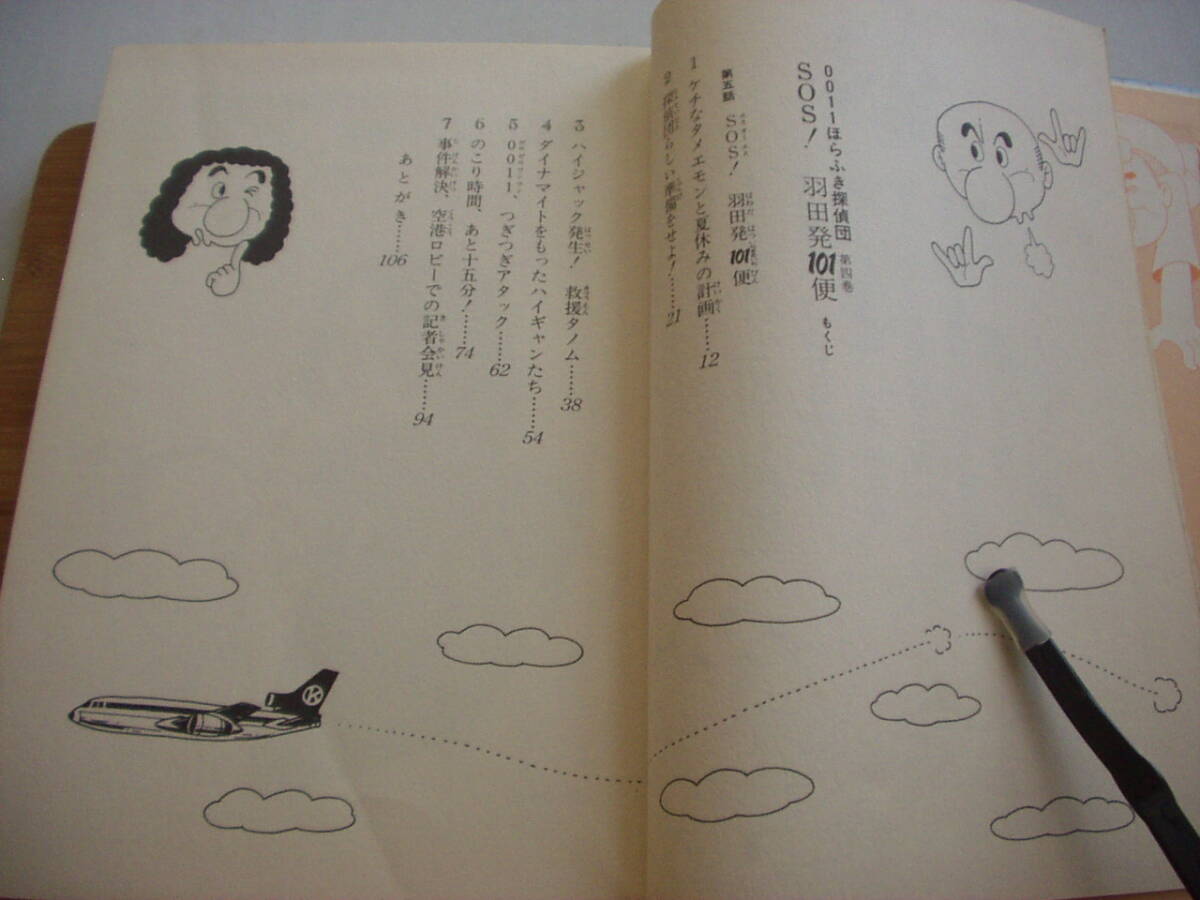 0011ほらふき探偵団 第四巻
SOS! 羽田発101便 もくじ
第五話 SOS! 羽田発101便
1 ケチなタメエモンと夏休みの計画……12
2 探偵団らしい準備をせよ!……21
3 ハイジャック発生! 救援タノム……38
4 ダイナマイトをもったハイギャンたち……54
5 0011、つぎつぎアタック……62
6 のこり時間、あと十五分!……74
7 事件解決、空港ロビーでの記者会見……94
あとがき……106
K